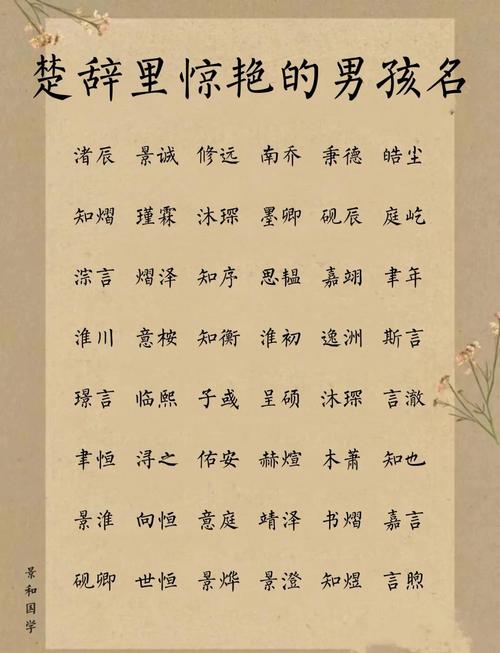 楚辞里惊艳的男孩名
渚辰 景诚 修远 南乔 秉德 皓尘
知熠 瑾霖 沐琛 墨卿 砚辰 庭屹
淙言 熠泽 知序 思韫 嘉翊 聿年
淮川 意桉 知衡 淮初 逸洲 斯言
璟言 临熙 子彧 呈硕 沐琛 言澈
聿恒 浔之 佑安 赫煊 木萧 知也
景淮 向恒 意庭 靖泽 书熠 嘉言
砚卿 世恒 景烨 景澄 知煜 言煦
景和国学